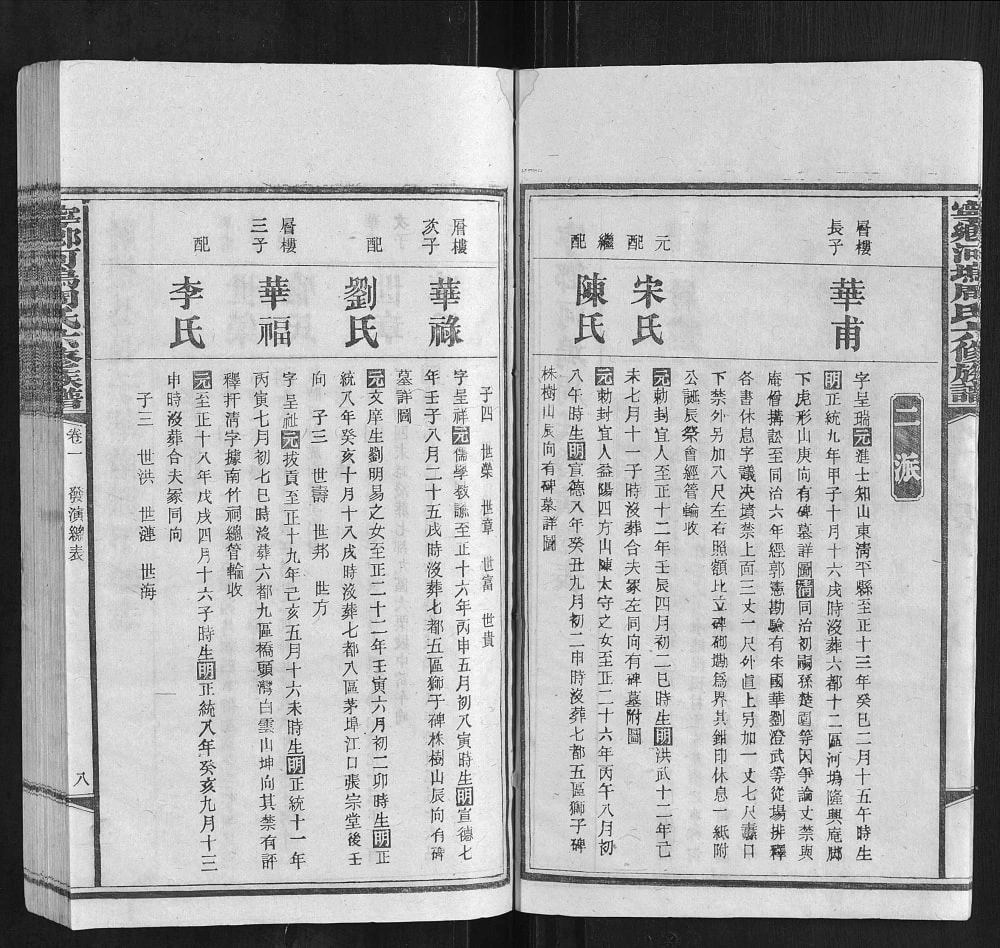 寧鄉河塢周氏六修族譜
二派
層樓長子
華甫
字呈瑞元進士知山東清平縣至正十三年癸巳二月十五午時生
明正統九年甲子十月十六戌時沒葬六都十二區河塢隆興庵脚
下虎形山庚向有碑墓詳圖清同治初嗣孫楚藍等因爭論丈禁與
庵僧搆訟至同治六年經郭憲勘驗有朱國華劉澄武等從場排釋
各書休息字議决墳禁上面三丈一尺外直上另加一丈七尺靠口
下禁外另加八尺左右照額比立碑砌墈為界其鉗印休息一紙附
公誕辰祭會經管輪收
元配
宋氏
元勅封宜人至正十二年壬辰四月初二巳時生明洪武十二年己
未七月十一子時沒葬合夫冢左同向有碑墓附圖
繼配
陳氏
元勅封宜人益陽四方山陳太守之女至正二十六年丙午八月初
八午時生明宣德八年癸丑九月初二申時沒葬七都五區獅子碑
株樹山辰向有碑墓詳圖
子四 世榮 世章 世富 世貴
層樓次子
華祿
字呈祥元儒學教諭至正十六年丙申五月初八寅時生明宣德七
年壬子八月二十五戌時沒葬七都五區獅子碑株樹山辰向有碑
墓詳圖
配
劉氏
元支庠生劉明易之女至正二十二年壬寅六月初二卯時生明正
統八年癸亥十月十八戌時沒葬七都八區茅埠江口張宗堂後壬
向 子三 世壽 世邦 世方
層樓三子
華福
字呈祉元拔貢至正十九年己亥五月十六未時生明正統十一年
丙寅七月初七巳時沒葬六都九區橋頭灣白雲山坤向其禁有評
釋扦清字據南竹祠總管輪收
配
李氏
元至正十八年戊戌四月十六子時生明正統八年癸亥九月十三
申時沒葬合夫冢同向
子三 世洪 世漣 世海
寧鄉河塢周氏六修族譜
卷一
發演總表
八